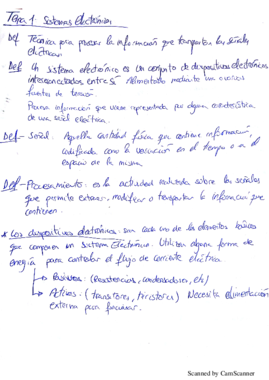 Tema 1: Sistemas Electrónicos
Def Técnica para procesar la información que transportan las señales
eléctricas.
- Def Un sistema electrónico es un conjunto de dispositivos electrónicos
interconectados entre sí. Alimentado mediante una o varias
fuentes de tensión
Procesa información que viene representada por alguna característica
de una señal eléctrica.
Def - Señal: Aquella cantidad física que contiene información,
codificada como la variación en el tiempo o en el
espacio de la misma.
Def - Procesamiento: es la actividad realizada sobre las señales
que permite extraer, modificar o transportar la información que
contienen.
* Los dispositivos electrónicos: son cada uno de los elementos básicos
que componen un Sistema Electrónico. Utilizan alguna forma de
energía para controlar el flujo de corriente eléctrica.
→ Pasivos: (Resistencias, condensadores, etc)
→ Activos: (transistores, tiristores) Necesita alimentación
externa para funcionar.
Scanned by CamScanner